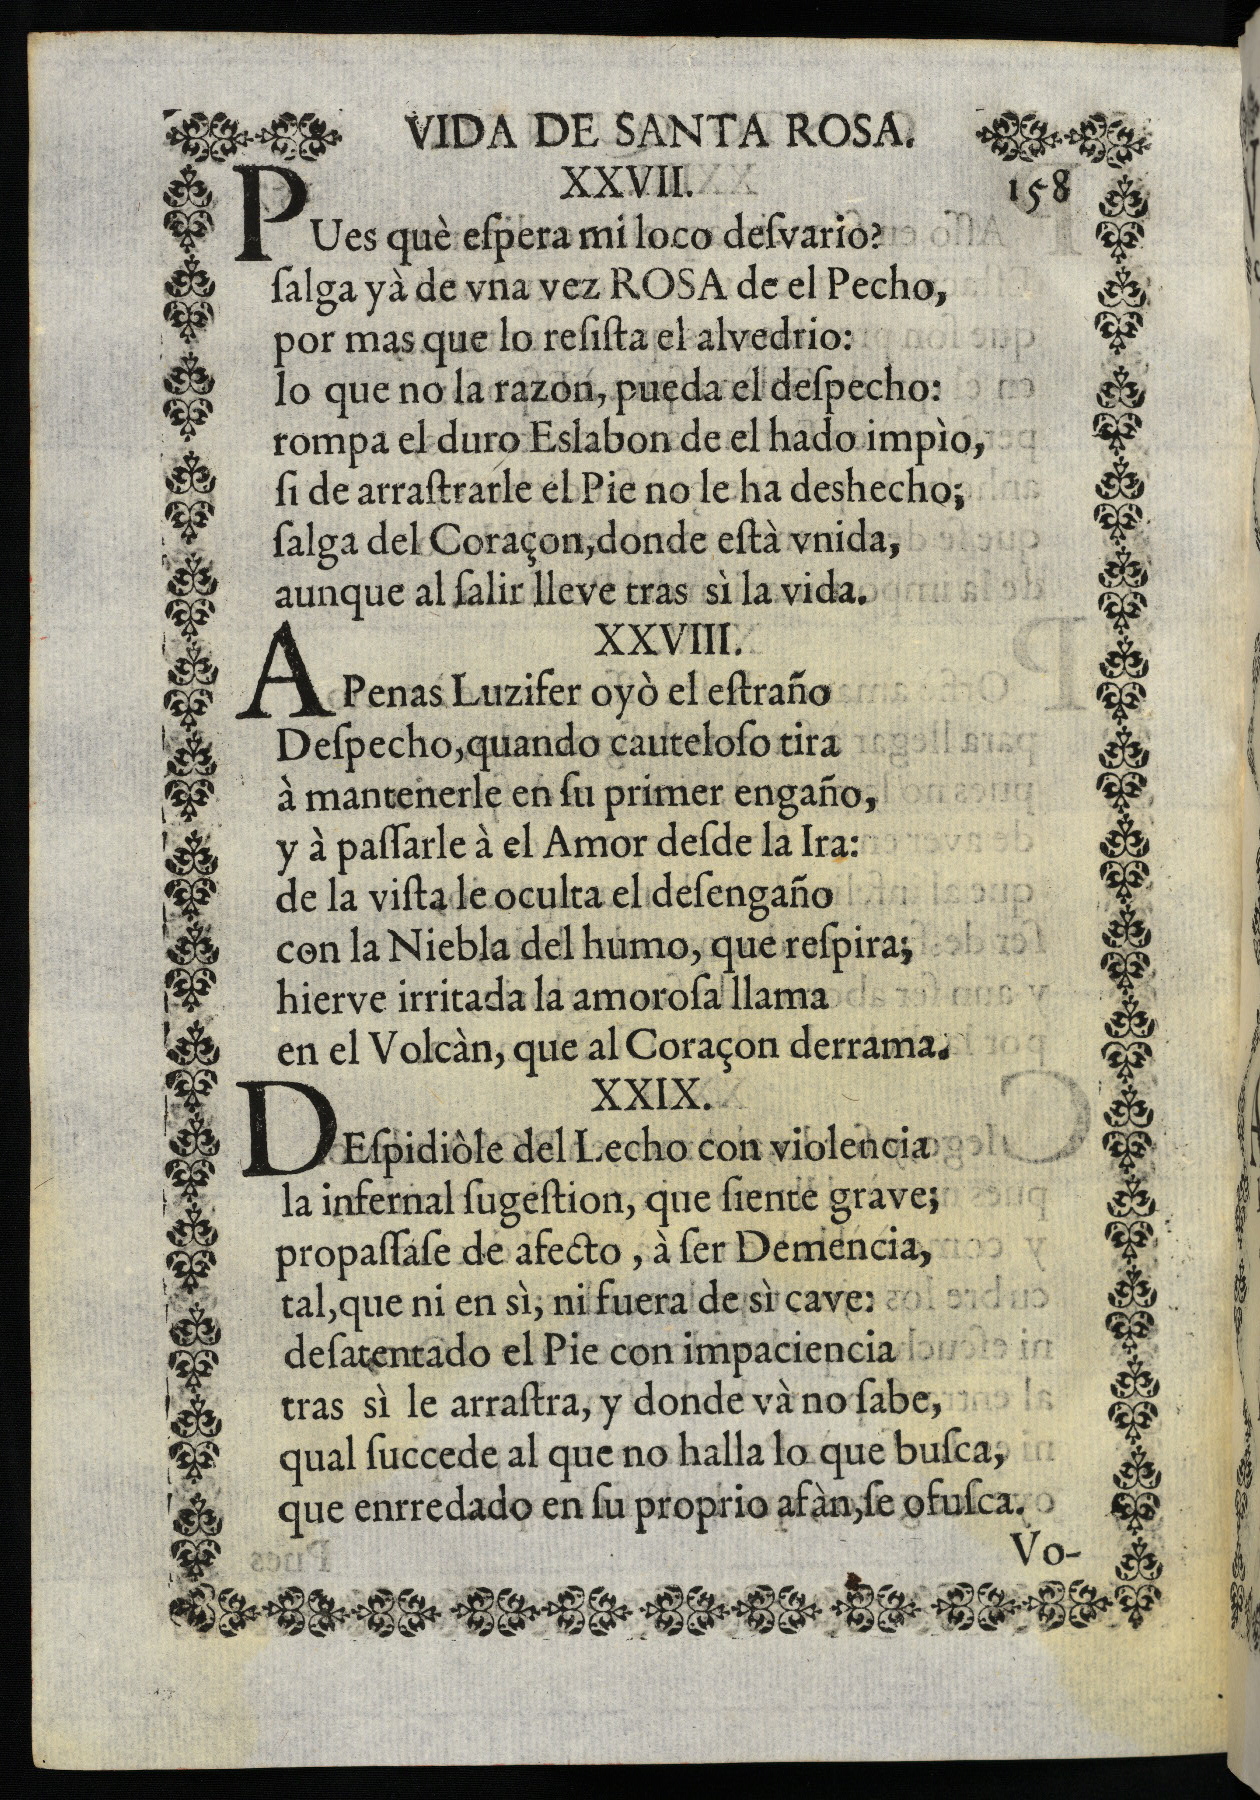 VIDA DE SANTA ROSA.
XXVII. 158
PUes què eſpera mi loco deſvario?
ſalga yà de vna vez ROSA de el Pecho,
por mas que lo reſiſta el alvedrio:
lo que no la razon, pueda el deſpecho:
rompa el duro Eslabon de el hado impìo,
ſi de arraſtrarle el Pie no le ha deshecho;
ſalga del Coraçon,donde eſtà vnida,
aunque al ſalir lleve tras sì la vida.
XXVIII.
APenas Luzifer oyò el eſtraño
Deſpecho,quando cauteloſo tira
à mantenerle en ſu primer engaño,
y à paſſarle à el Amor deſde la Ira:
de la viſta le oculta el deſengaño
con la Niebla del humo, que reſpira;
hierve irritada la amoroſa llama
en el Volcàn, que al Coraçon derrama.
XXIX.
DEſpidiòle del Lecho con violencia
la infernal ſugeſtion, que ſiente grave;
propaſſaſe de afecto , à ſer Demencia,
tal,que ni en sì, ni fuera de sì cave:
deſatentado el Pie con impaciencia
tras sì le arraſtra, y donde và no ſabe,
qual ſuccede al que no halla lo que buſca,
que enrredado en ſu proprio afàn,ſe ofuſca.
Vo-